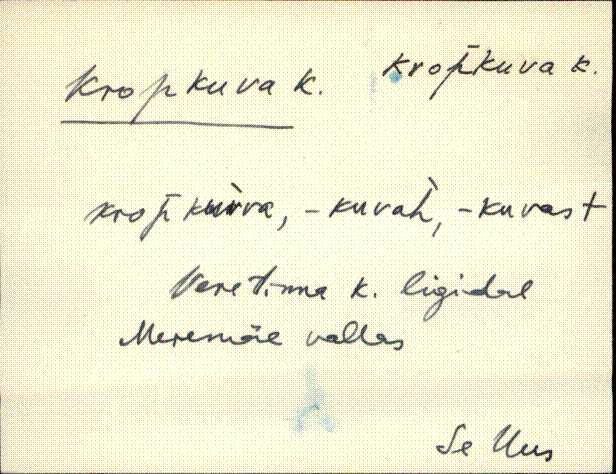 Kropkuva k. Krop̄kuva k.
krop̄kùvva, -kuvah̀, -kuvast
Veretinna k. ligidal
Meremäe vallas
Se Uus